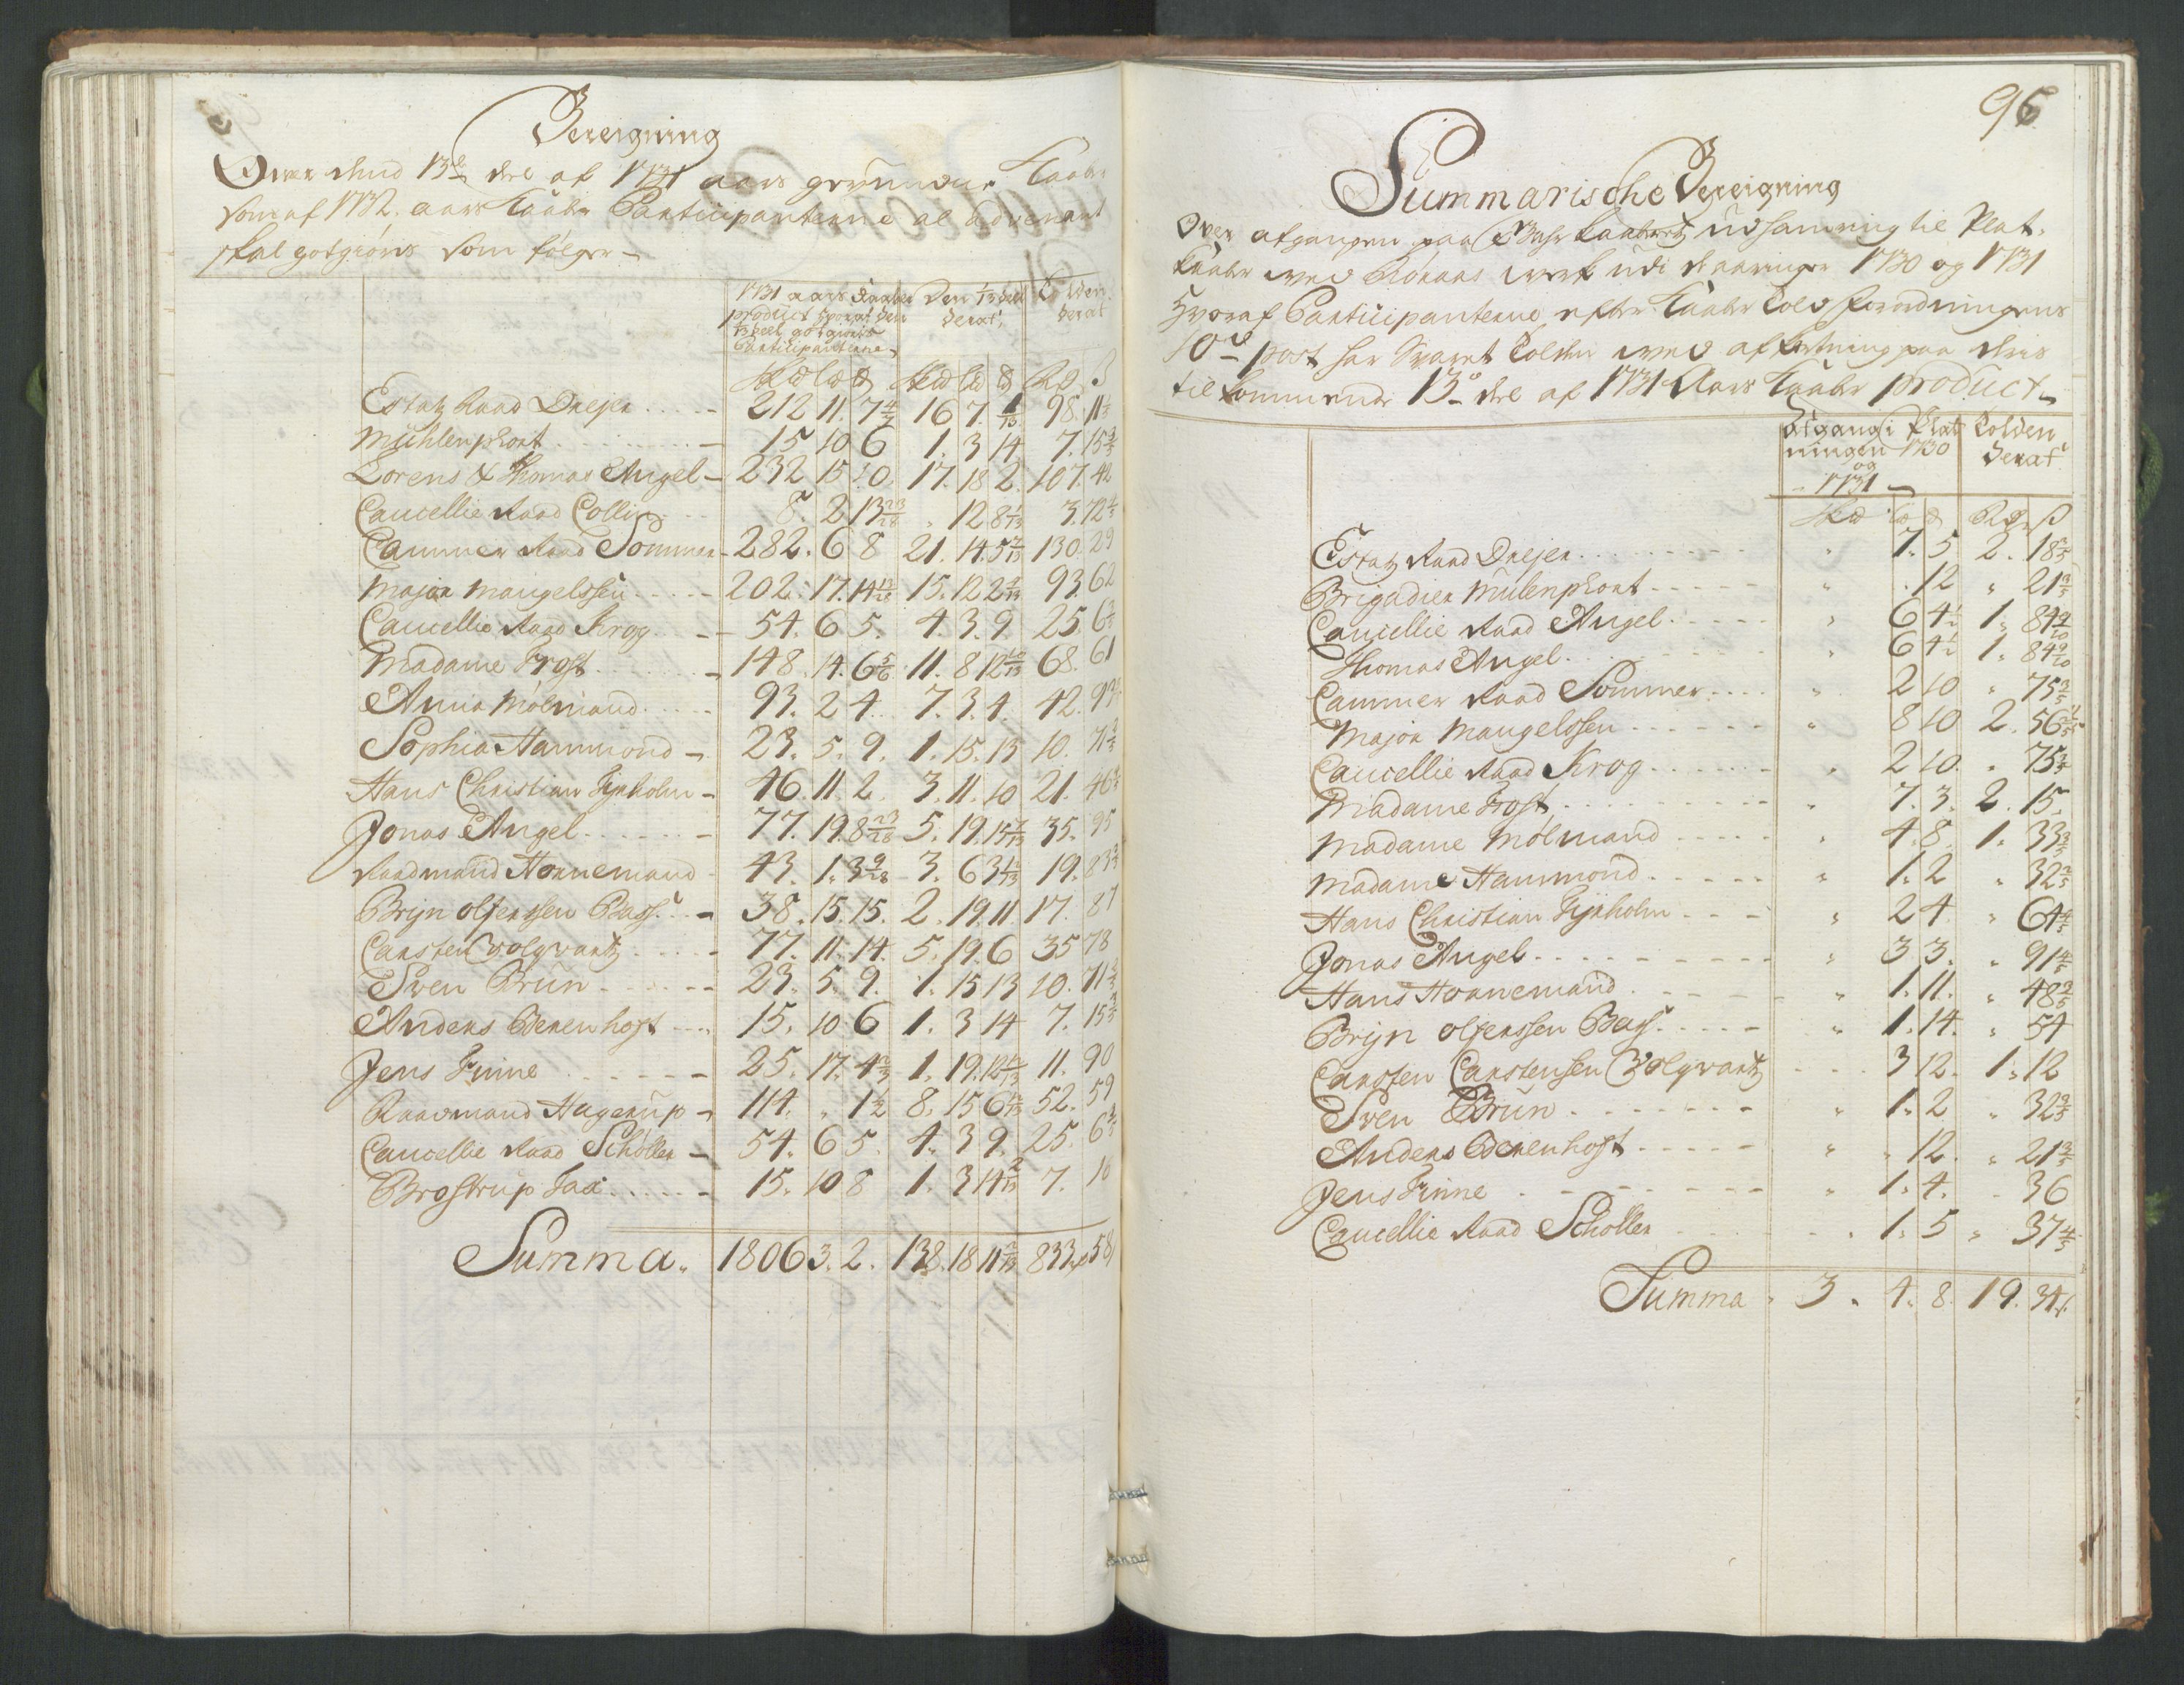 Bereigning
Over dend 13de deel af 1731 aars grunnduer Kaaber
som af 1732. aars Kaaber Participanterne al advenant
skal gotgiöris som følger
1731 aars Kaaber
product hvoraf den
1/13 deel gotgiöris
Participanterne
Den 1/13 deel
deraf
Tolden
deraf
Etatz Raad Dreyer 212 11. 7 4/7 16 7. 1/13 98. 11 1/5
Mühlenphort 15 10 6 1. 3 14 7. 15 3/5
Lorens & Thomas Angel 232 15 10. 17. 18 2. 107. 42
Cancellie Raad Collin 8. 2 13 23/28 " 12 8 1/13 3. 72 4/5
Cammer Raad Sommer 282. 6 8 21. 14. 5 7/13 130. 29
Major Mangelssen 202. 17. 14 13/28 15. 12 2 9/13 93. 62
Cancellie Raad Krog 54. 6 5. 4. 3. 9. 25. 6 3/5
Madame Frost 148. 14. 6 5/6 11. 8 12 10/13 68. 61
Anna Molmand 93. 2 4. 7. 3. 4. 42. 93
Sophia Hammond 23. 5. 9. 1. 15. 13 10. 71 3/5
Hans Christian Fyrholm 46. 11. 2. 3. 11. 10 21. 46
Jonas Angel 77. 19. 8 23/28 5. 19. 15 7/13 35. 95
Raadmand Hornemand 43. 1. 3 9/28 3. 6 3 1/13 19. 83
Bryn Olferssen Bass 38. 15. 15. 2. 19. 11 17. 87
Carsten Volqvartz 77. 11. 14. 5. 19. 6 35 78
Sven Brun 23. 5. 9. 1. 15 13 10. 71 3/5
Anders Berenhoft 15. 10 6 1. 3 14 7. 15 3/5
Jens Finne 25. 17. 4 2/3 1. 19. 12 11. 90
Raadmand Hagerup 114. " 1 1/2 8. 15 6 52. 59
Cancellie Raad Schöller 54. 6 5. 4. 3 9. 25. 6 3/5
Brostrup Fax 15. 10 8 1. 3 14 2/13 7. 16
Summa. 1806 3. 2. 138. 18 11 833. 58
96
Summarische Bereigning
Over afgangen paa Kaaberets udhamring til Plat-
Kaaber ved Röraas werk udi de aaringer 1730 og 1731
Hvoraf Participanterne efter Kaaber Told forordningens
10de post har Svaret Tolden ved afkortning paa deris
tilkommende 13de deel af 1731 Aars Kaaber product
Afgang i Plat-
ningen 1730
og
1731
Tolden
deraf
Etatz Raad Dreyer " 7. 5 2. 18
Brigadier Mülenphort " . 12 " 21 3/5
Cancellie Raad Angel " 6 4 1/2 1. 84 9/10
Thomas Angel " 6 4 1/2 1. 84 9/10
Cammer Raad Sommer " 2 10 " 75 3/5
Major Mangelssen " 8 10 2. 56
Cancellie Raad Krog " 2 10. " 75 3/5
Madame Frost " 7. 3. 2. 15.
Madame Molmand " 4. 8. 1. 33 3/5
Madame Hammond " 1. 2 " 32 2/5
Hans Christian Fyrholm " 2 4. " 64 4/5
Jonas Angel " 3 3. " 91 4/5
Hans Hornemand " 1. 11. " 48 3/5
Bryn Olferssen Bass " 1. 14. " 54
Carsten Carstensen Volqvartz 3 12. 1. 12
Sven Brun " 1. 2 " 32 2/5
Anders Berenhoft " " 12. " 21 3/5
Jens Finne " 1. 4. . 36
Cancellie Raad Schöller " 1. 5 " 37 4/5
Summa " 3. 4. 8. 19. 34